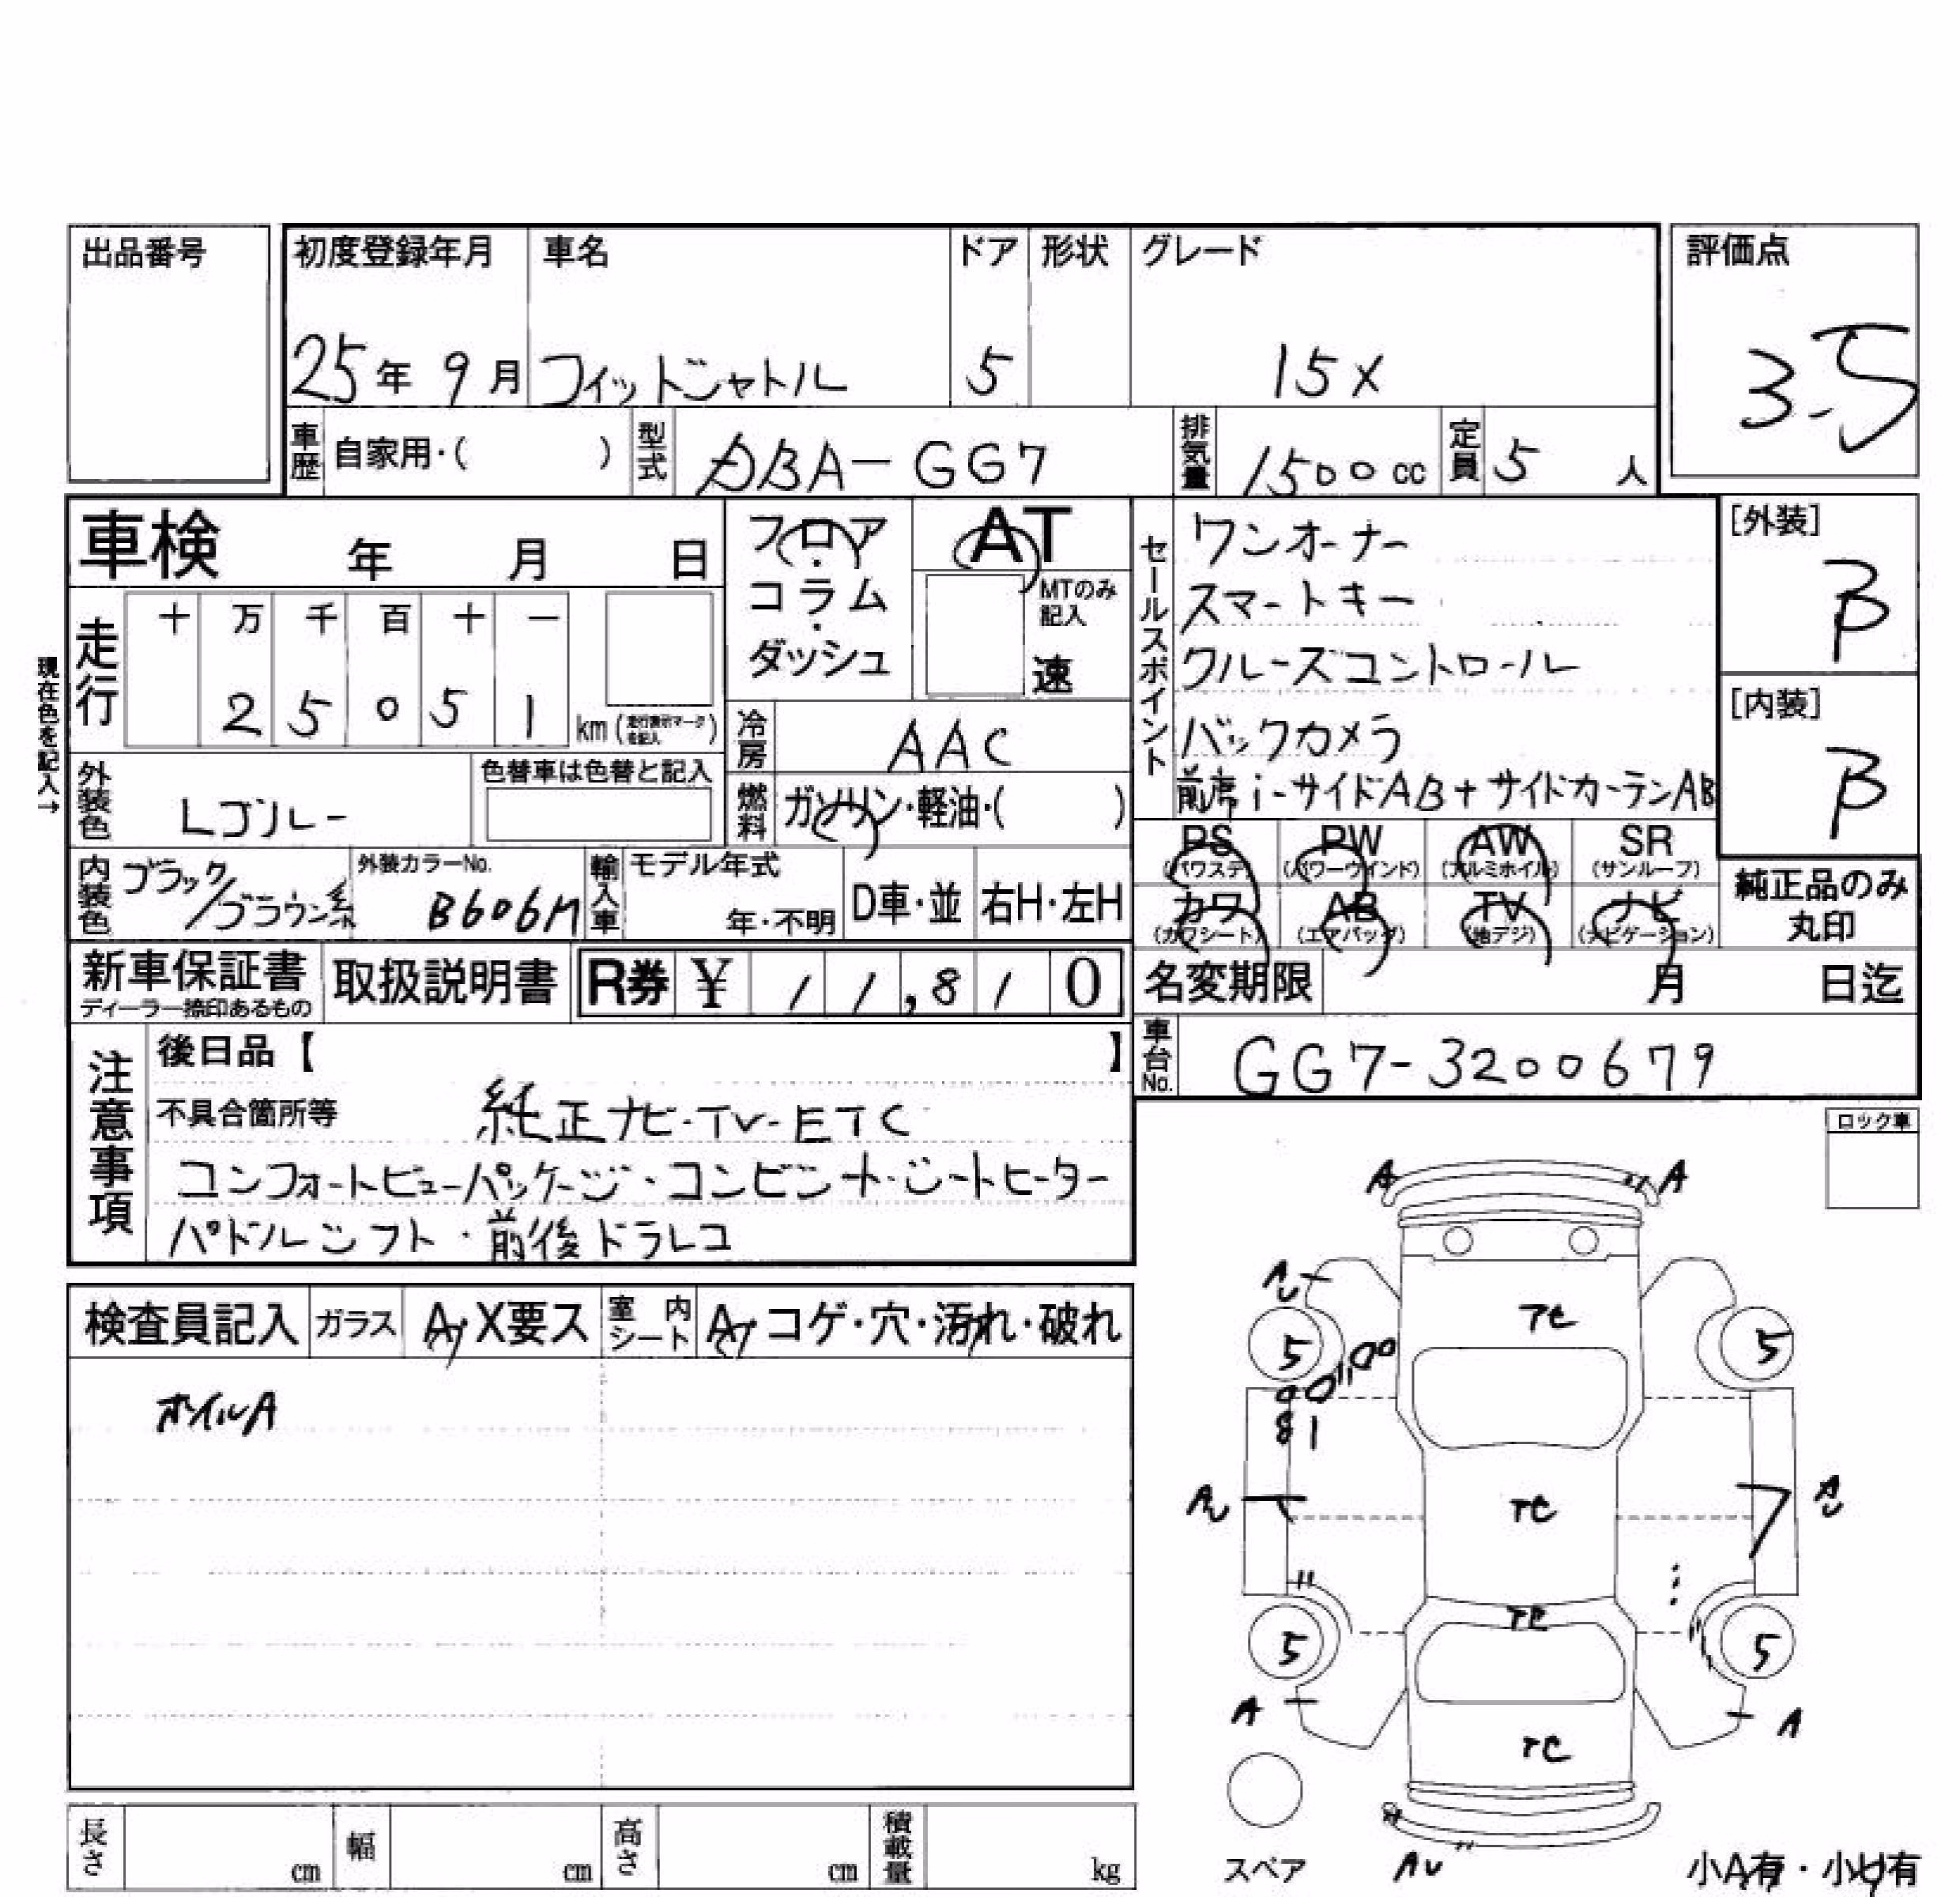 出品番号
初度登録年月 車名 ドア 形状 グレード 評価点
25年 9月 フィットシャトル 5 15X 3.5
車歴 自家用・( ) 型式 DBA-GG7 排気量 1500cc 定員 5人
車検 年 月 日
フロア・コラム・ダッシュ
AT
MTのみ記入
速
セールスポイント
ワンオーナー
スマートキー
クルーズコントロール
バックカメラ
前席i-サイドAB+サイドカーテンAB
[外装] B
[内装] B
現在色を記入→
走行 十 万 千 百 十 一
2 5 0 5 1 km (走行表示マークを記入)
冷房 AAC
外装色 Lゴルー
色替車は色替と記入
燃料 ガソリン・軽油・( )
PS (パワステ) PW (パワーウインド) AW (アルミホイル) SR (サンルーフ)
カワ (カワシート) AB (エアバッグ) TV (地デジ) ナビ (ナビゲーション)
純正品のみ丸印
内装色 ブラック/ブラウン系
外装カラーNo. B606M
輸入車 モデル年式 年・不明 D車・並 右H・左H
新車保証書 ディーラー捺印あるもの
取扱説明書
R券 ¥ 11,810
名変期限 月 日迄
車台No. GG7-3200679
注意事項
後日品【 】
不具合箇所等 純正ナビ-TV-ETC
コンフォートビューパッケージ・コンビシート・シートヒーター
パドルシフト・前後ドラレコ
ロック車
検査員記入 ガラス A・X要ス 室内シート A・コゲ・穴・汚れ・破れ
ホイルA
A A
AU
TC
5 5
81
AU TC AU
TC
5 5
A A
TC
スペア AU 小A有・小U有
長さ cm 幅 cm 高さ cm 積載量 kg